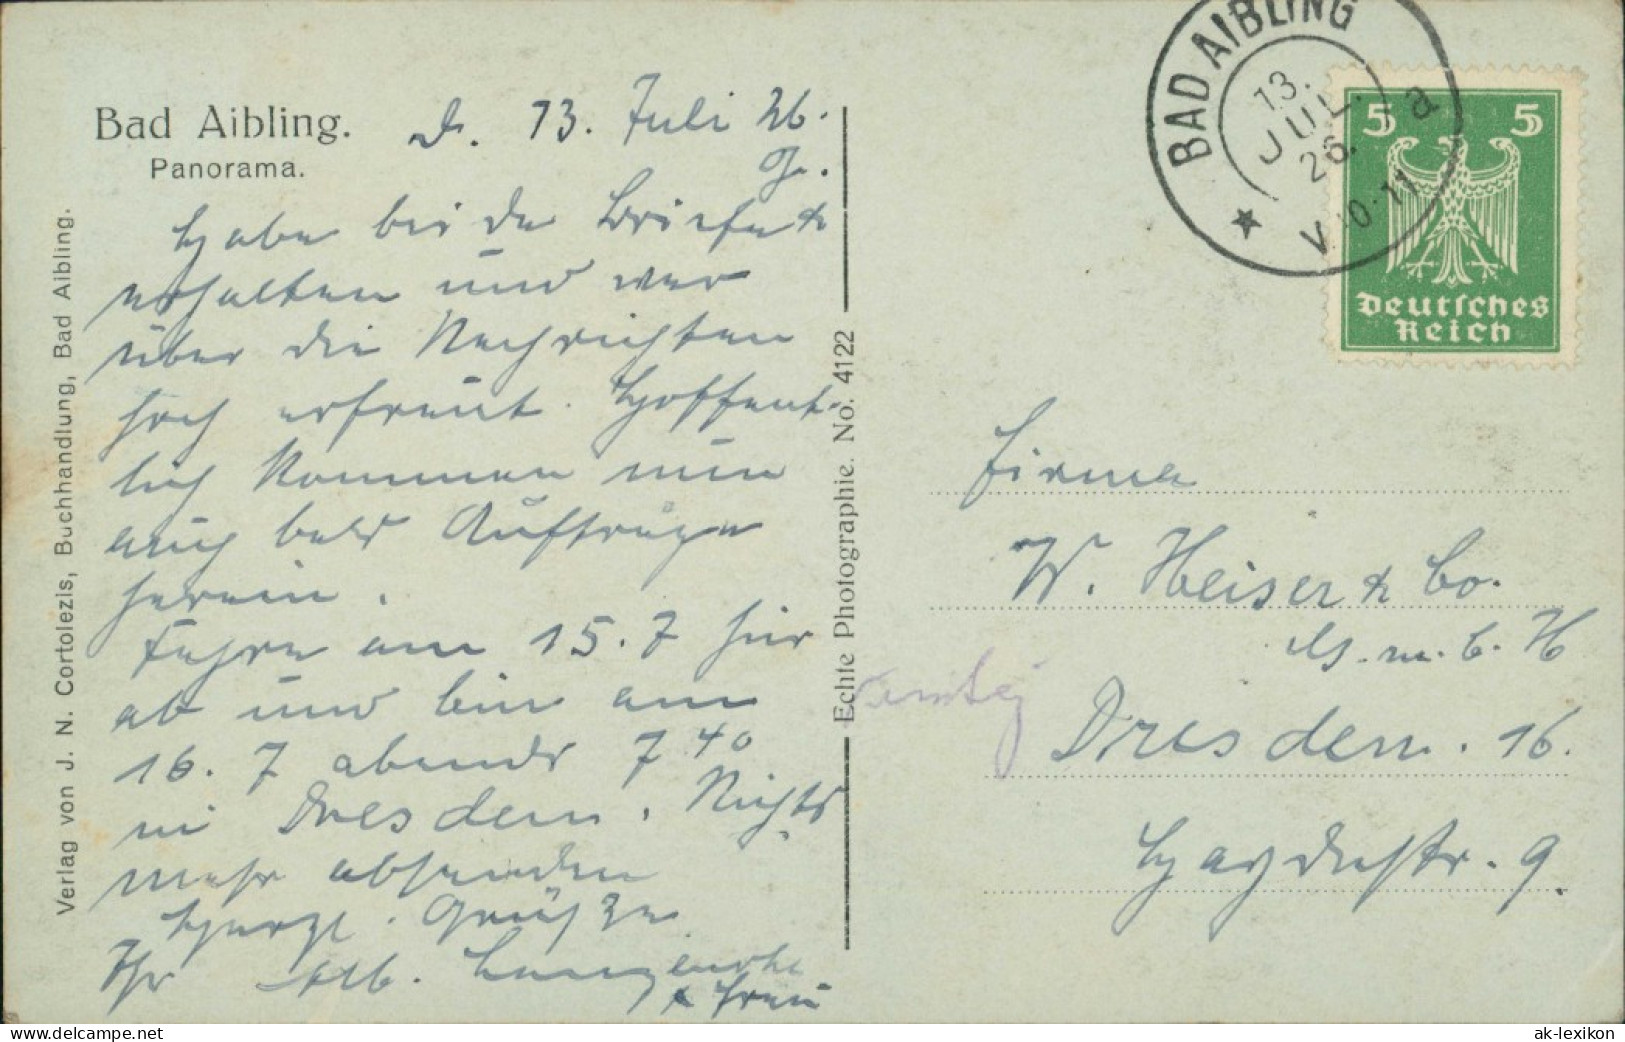 Bad Aibling.
Panorama.
d. 13. Juli 26.
Habe beide Briefe
erhalten und war
über die Nachrichten
hoch erfreut. Hoffent-
lich kommen nun
auch bald Aufträge
herein.
Fahre am 15.7 hier
ab und bin am
16.7 abends 7 40
in Dresden. Nichts
mehr absenden
Herzl. Grüße
Ihr Alb.
& Frau
Verlag von J. N. Cortolezis, Buchhandlung, Bad Aibling.
Echte Photographie. No. 4122
BAD AIBLING
13.
JUL.
26.
V.10-11
a
5 5
Deutsches
Reich
Firma
W. Heiser & Co.
G.m.b.H
Dresden. 16.
Haydnstr. 9.
ak-lexikon.de
www.delcampe.net